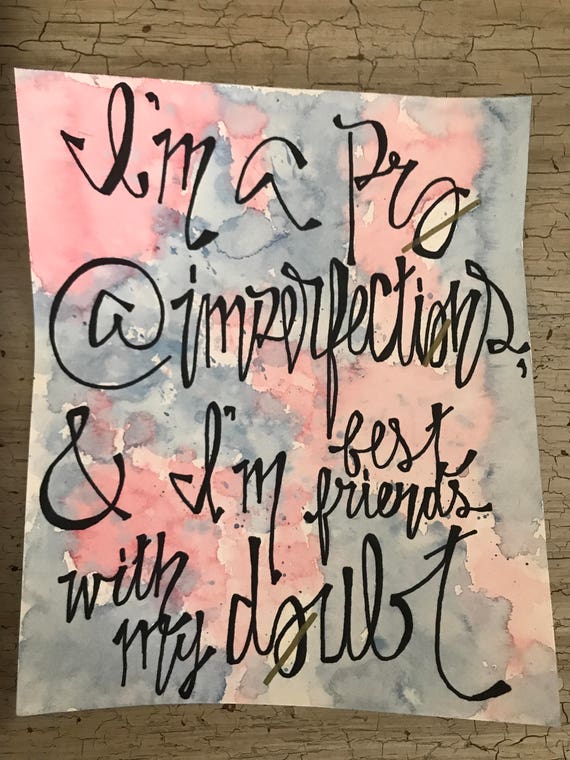 I'm a prø
@imperfectiøns,
& I'm best
friends
with
my døubt